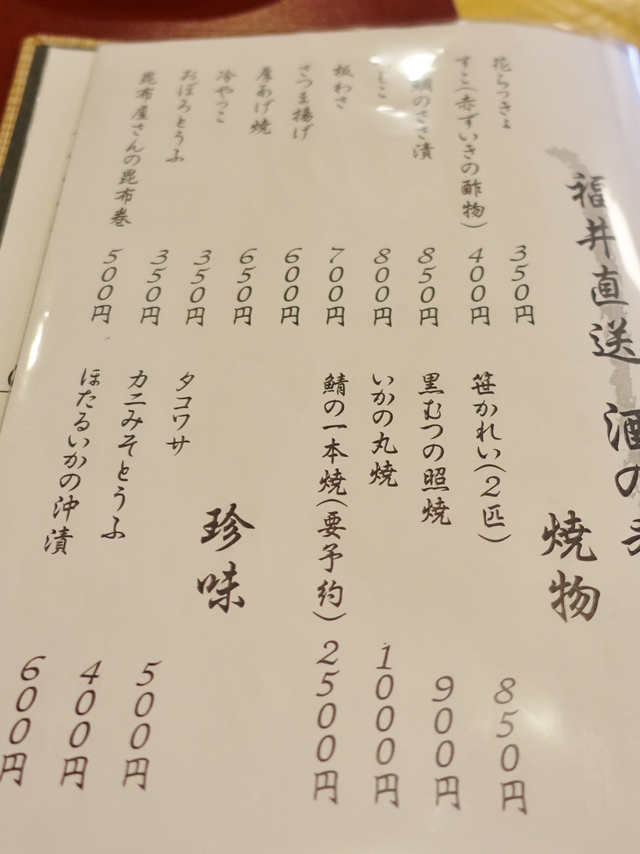 福井直送 酒の
花らっきょ 350円
すこ(赤ずいきの酢物) 400円
鯛のささ漬 850円
800円
板わさ 700円
さつま揚げ 600円
厚あげ焼 650円
冷やっこ 350円
おぼろとうふ 350円
昆布屋さんの昆布巻 500円
焼物
笹かれい(2匹) 850円
黒むつの照焼 900円
いかの丸焼 1000円
鯖の一本焼(要予約) 2500円
珍味
タコワサ 500円
カニみそとうふ 400円
ほたるいかの沖漬 600円